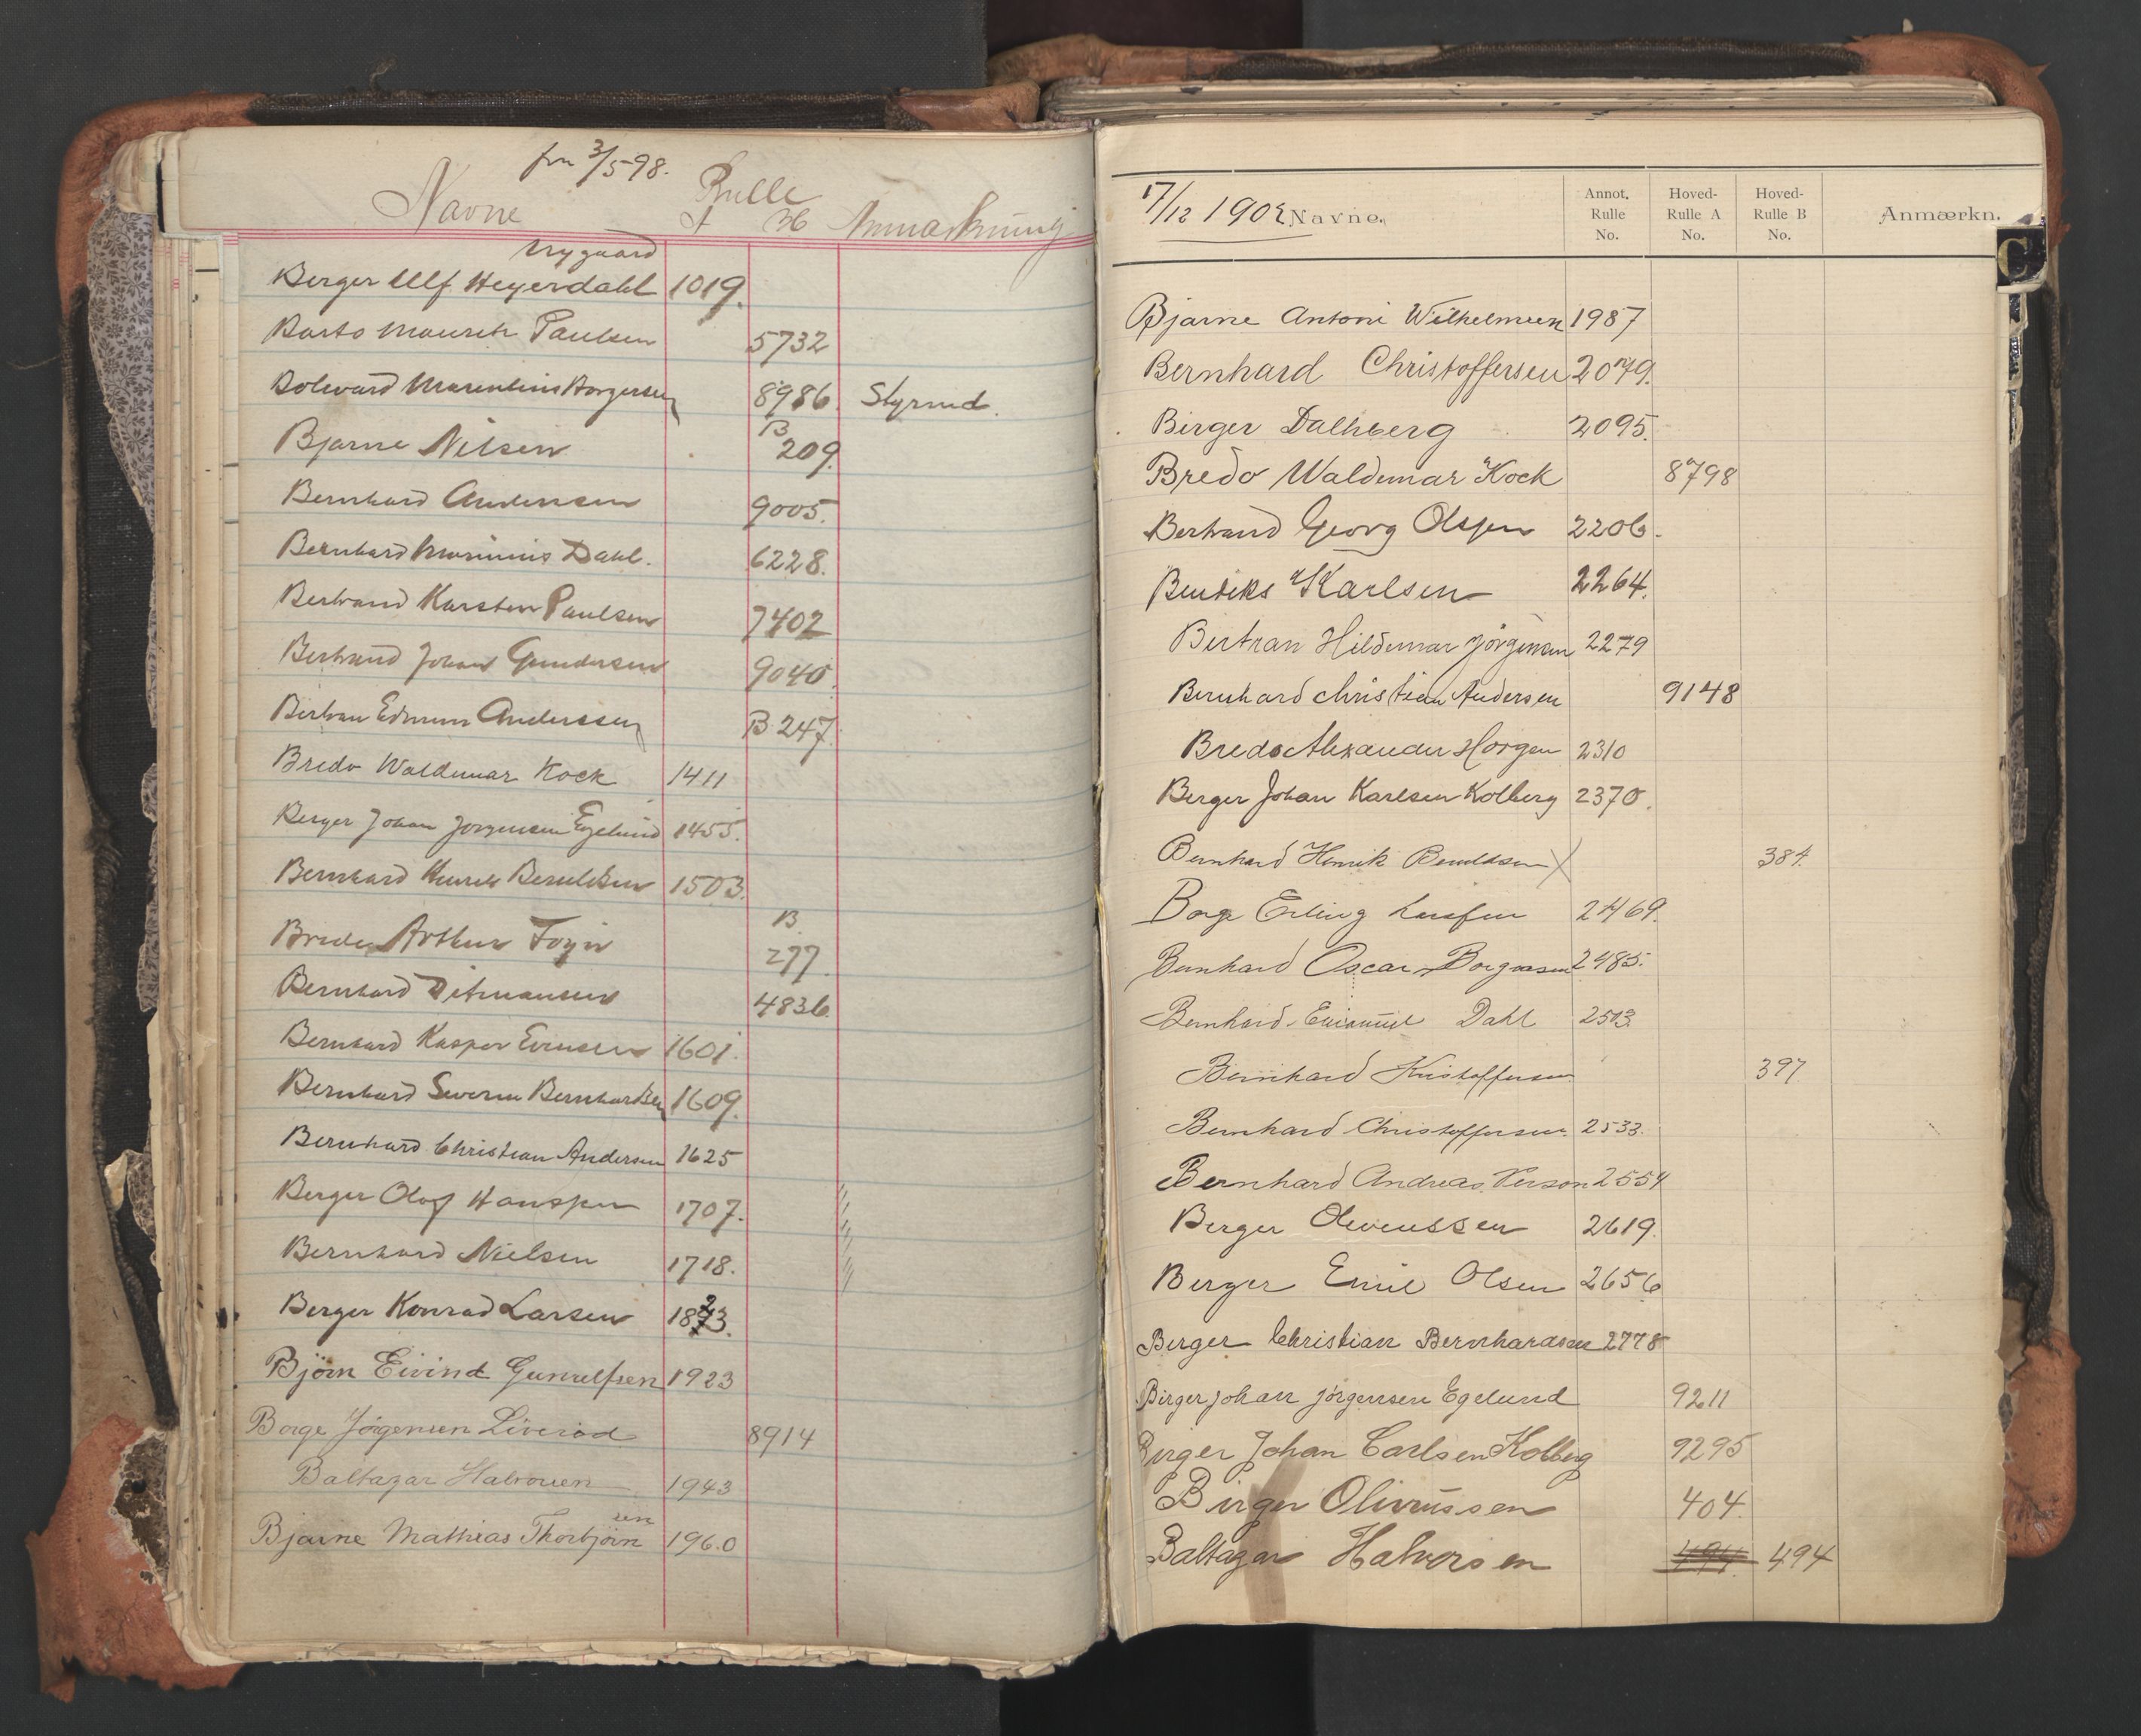 fra 3/5-98.
Navne Rulle
A Hb Anmærkning
Nygaard
Berger Ulf Heyerdahl 1019.
Paulsen 5732
8986. Styrmd.
Bjarne Nilsen B 209.
Bernhard Andersen 9005.
Bernhard Dahl. 6228.
Bertrand Karsten Paulsen 7402
Bertrand Johan Gundersen 9040.
Bertran Anderssen B 247.
Bredo Waldemar Kock 1411
Berger Johan Jørgensen Egelund 1455.
Bernhard Henrik Berntdsen 1503.
Arthur B 277.
Bernhard Ditmansen 4836.
Bernhard Kasper Evensen 1601.
Bernhard Severin Bernhardsen 1609.
Bernhard Christian Andersen 1625
Berger Olaf Hanssen 1707.
Bernhard Nielsen 1718.
Berger Konrad Larsen 1823.
Björn Eivind Gunulfsen 1923
Borge Jörgensen Liverød 8914
Baltazar Halvorsen 1943
sen
Bjarne Mathias Thorbjörn 1960
17/12 1902 Navne. Annot. Rulle No. Hoved-Rulle A No. Hoved-Rulle B No. Anmærkn.
C
Bjarne Antoni Wilhelmsen 1987
Bernhard Christoffersen 2079.
Birger Dalhberg 2095.
Bredo Waldemar Kock 8798
Bertrand Georg Olssen 2206.
Karlsen 2264.
Bertran Hildemar Jörgensen 2279
Bernhard Christian Andersen 9148
Bredo Alexander Horgen 2310
Berger Johan Karlsen Kolberg 2370.
Bernhard Henrik Berntdsen X 384.
Borge Erling Larssen 2469.
Bernhard Oscar Borgersen 2485.
Bernhard Emanuel Dahl 2503.
Bernhard Kristoffersen 397
Bernhard Christoffersen. 2533.
Bernhard Andreas Person 2554
Berger Oliveussen 2619.
Berger Emil Olsen 2656
Berger Christian Bernhardsen 2778
Birger Johan Jörgensen Egelund 9211
Birger Johan Carlsen Kolberg 9295
Birger Olivussen 404.
Baltazar Halvorsen 494. 494